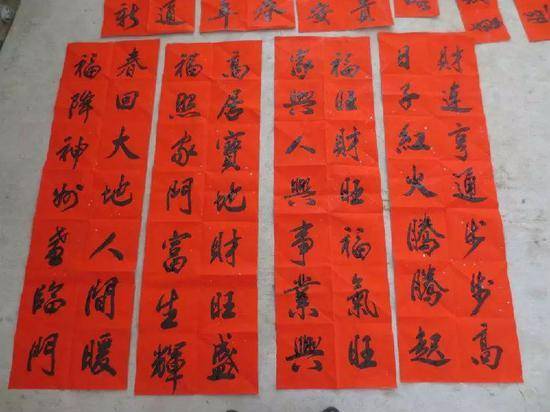 財運亨通步步高
日子紅火騰騰起
福旺財旺福氣旺
家興人興事業興
高居寶地財旺盛
福照家門富生輝
春回大地人間暖
福降神州喜臨門